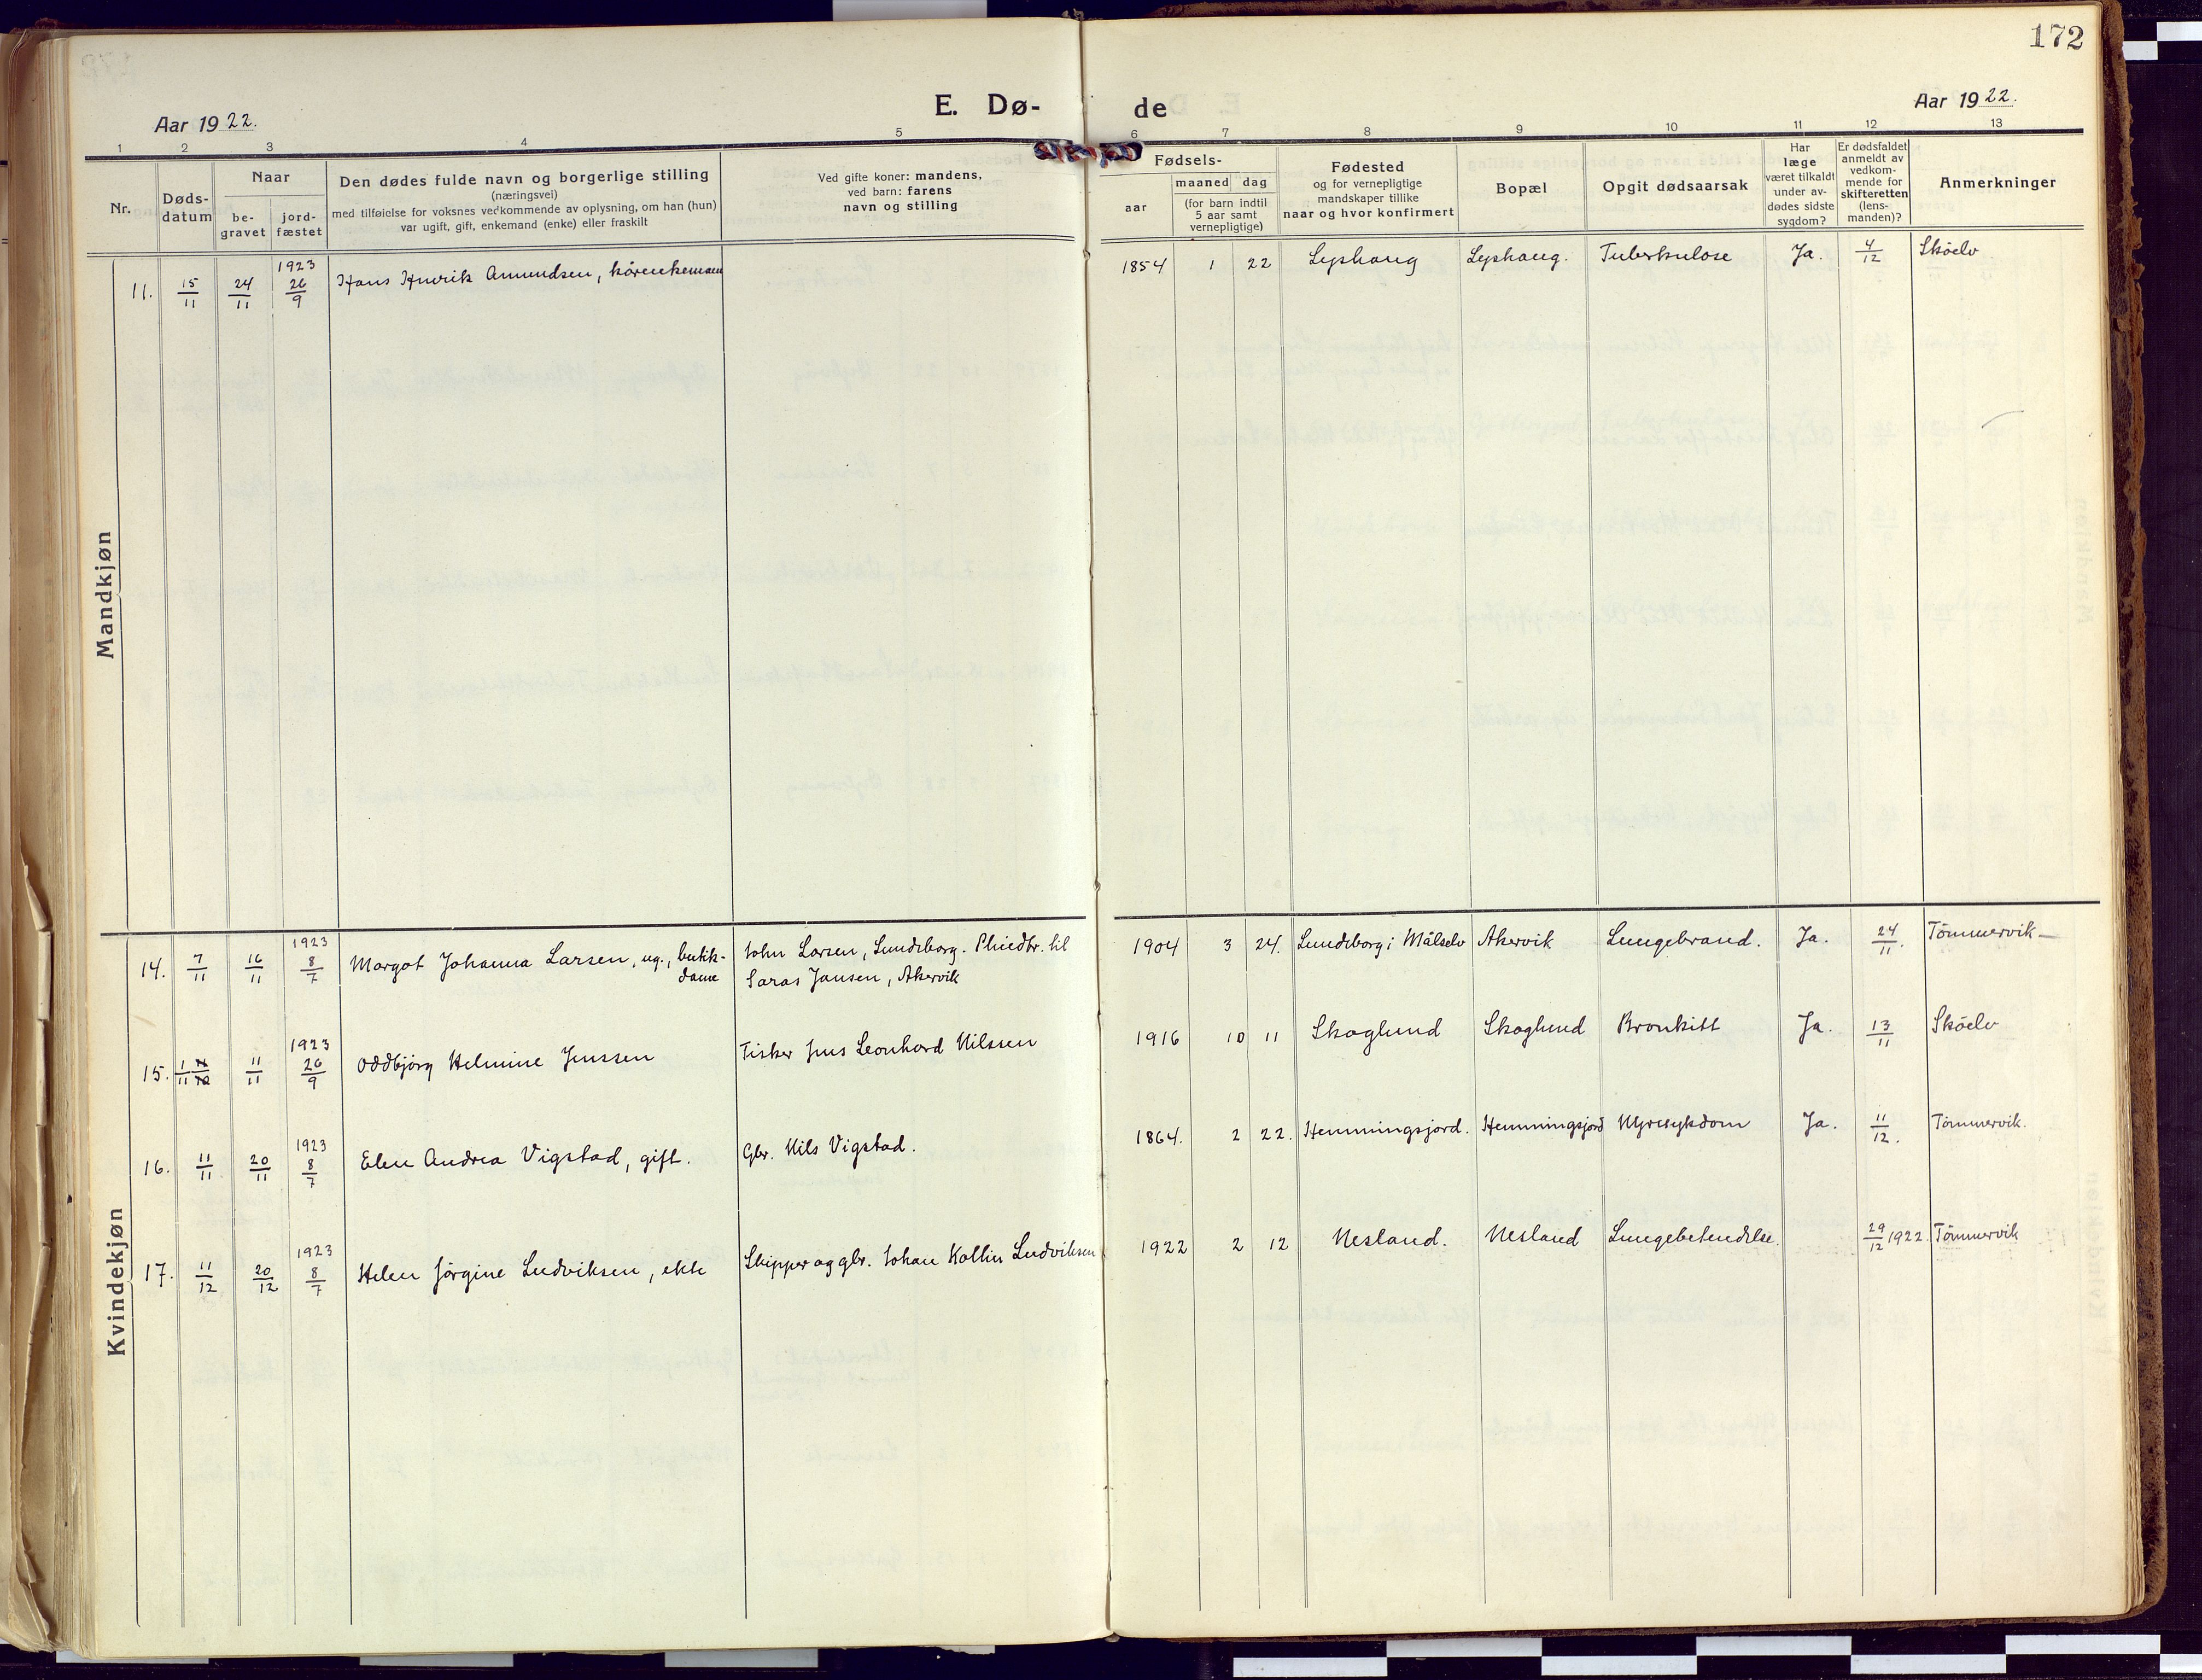 172
Aar 1922.
E. Dø-
de
Aar 1922.
1 2 3 4 5 6 7 8 9 10 11 12 13
Nr.
Døds-
datum
Naar
be-
gravet
jord-
fæstet
Den dødes fulde navn og borgerlige stilling
(næringsvei)
med tilføielse for voksnes vedkommende av oplysning, om han (hun)
var ugift, gift, enkemand (enke) eller fraskilt
Ved gifte koner: mandens,
ved barn: farens
navn og stilling
Fødsels-
aar
maaned dag
(for barn indtil
5 aar samt
vernepligtige)
Fødested
og for vernepligtige
mandskaper tillike
naar og hvor konfirmert
Bopæl
Opgit dødsaarsak
Har
læge
været tilkaldt
under av-
dødes sidste
sygdom?
Er dødsfaldet
anmeldt av
vedkom-
mende for
skifteretten
(lens-
manden)?
Anmerkninger
Mandkjøn
11. 15/11 24/11 1923 26/9 Hans Henrik Amundsen, kårenkemann 1854 1 22 Lyshaug Lyshaug. Tuberkulose Ja. 4/12 Sköelv
Kvindekjøn
14. 7/11 16/11 1923 8/7 Margot Johanna Larsen, ug., butik-
dame
John Larsen, Lundeborg. Pleiedtr. til
Saras Jansen, Akervik
1904 3 24. Lundeborg i Målselv Akervik Lungebrand. Ja. 24/11. Tömmervik —
15. 1/11 11/11 1923 26/9 Oddbjörg Helmine Jenssen Fisker Jens Leonhard Nilssen 1916 10 11 Skoglund Skoglund Bronkitt Ja. 13/11 Sköelv
16. 11/11 20/11 1923 8/7 Elen Andrea Vigstad, gift. Gbr. Nils Vigstad. 1864. 2 22. Hemmingsjord. Hemmingsjord Nyresykdom Ja. 11/12. Tömmervik.
17. 11/12 20/12 1923 8/7 Helen Jörgine Ludviksen, ekte Skipper og gbr. Johan Kollin Ludviksen 1922 2 12 Nesland. Nesland Lungebetendelse. 29/12 1922. Tömmervik